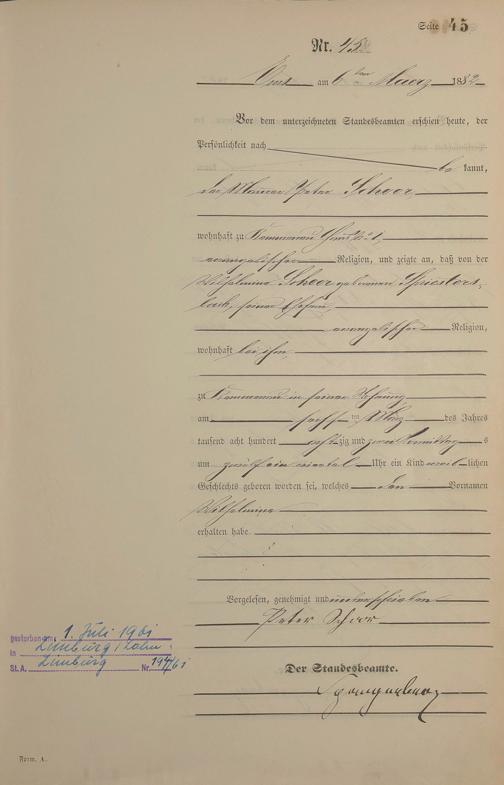 Seite 45
Nr. 45
am 6ten Maerz 1882
Vor dem unterzeichneten Standesbeamten erschien heute, der
Persönlichkeit nach
be kannt,
der Maurer Peter Scheer
wohnhaft zu
evangelischer Religion, und zeigte an, daß von der
Wilhelmine Scheer geborenen
seiner Ehefrau,
evangelischer Religion,
wohnhaft bei ihm,
zu in seiner Wohnung
am ten März des Jahres
tausend acht hundert achtzig und zwei Vormittags
um zwölf ein viertel Uhr ein Kind weiblichen
Geschlechts geboren worden sei, welches den Vornamen
Wilhelmine
erhalten habe.
Vorgelesen, genehmigt und unterschrieben
Peter Scheer
Der Standesbeamte.
gestorben am 1. Juli 1961
in Limburg / Lahn
St.A. Limburg Nr. 194/61
Form. A.